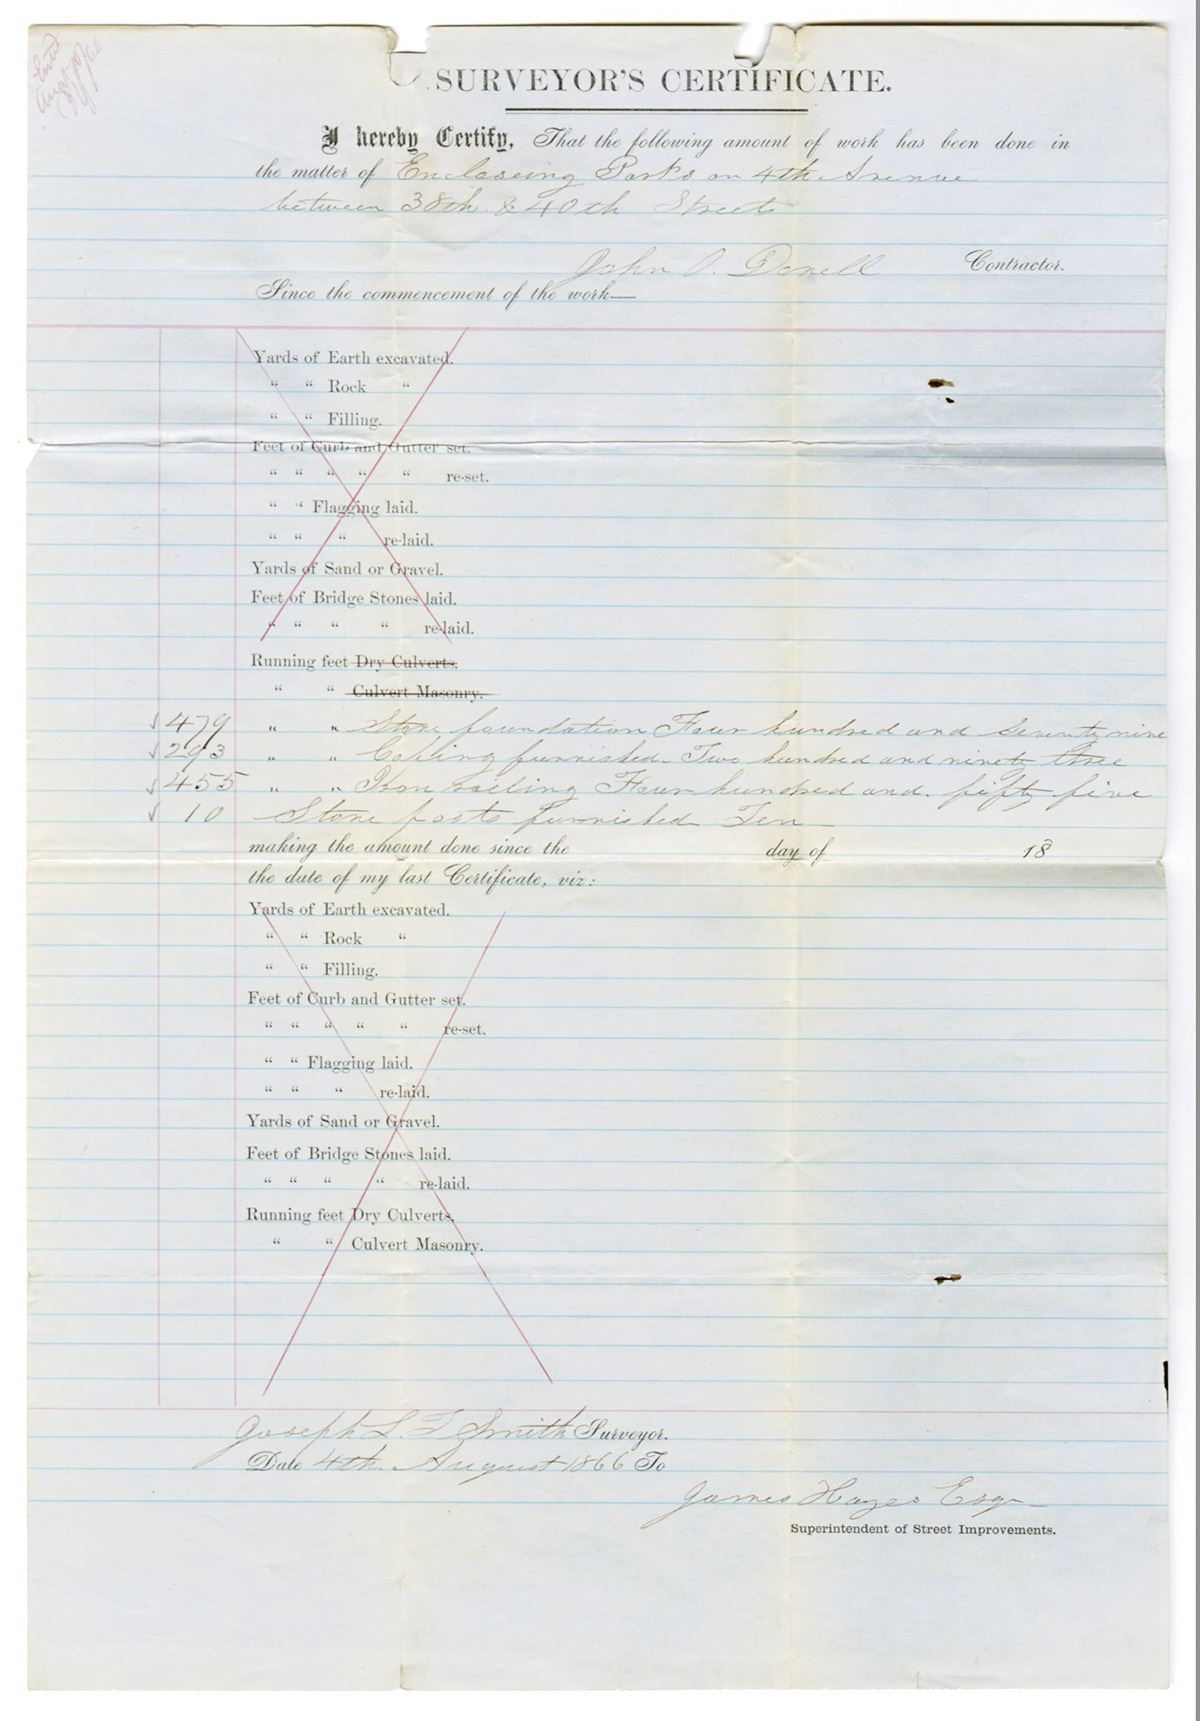 Augt 10/66
SURVEYOR'S CERTIFICATE.
I hereby Certify, That the following amount of work has been done in
the matter of Encloseing Parks on 4th Avenue
between 38th & 40th Streets
John O. Donell Contractor.
Since the commencement of the work—
Yards of Earth excavated.
" " Rock "
" " Filling.
Feet of Curb and Gutter set.
" " " " " re-set.
" " Flagging laid.
" " " re-laid.
Yards of Sand or Gravel.
Feet of Bridge Stones laid.
" " " " re-laid.
Running feet Dry Culverts.
" " Culvert Masonry.
√ 479 " " Stone foundation Four hundred and seventy nine
√ 293 " " Copeing furnished. Two hundred and ninety three
√ 455 " " Iron railing Four hundred and. fifty five
√ 10 Stone posts furnished Ten
making the amount done since the day of 18
the date of my last Certificate, viz:
Yards of Earth excavated.
" " Rock "
" " Filling.
Feet of Curb and Gutter set.
" " " " " re-set.
" " Flagging laid.
" " " re-laid.
Yards of Sand or Gravel.
Feet of Bridge Stones laid.
" " " " re-laid.
Running feet Dry Culverts.
" " Culvert Masonry.
Joseph L. T. Smith Surveyor.
Date 4th. August 1866 To
James Hayes Esqr
Superintendent of Street Improvements.